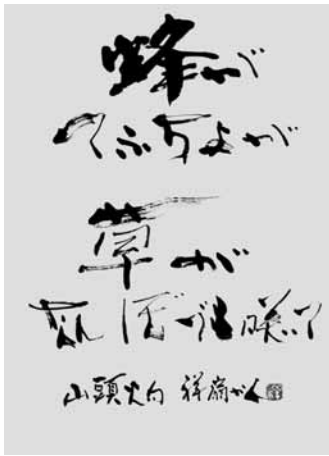 蜂が
てふちよが
草が
なんぼでも咲いて
山頭火句 祥扇かく